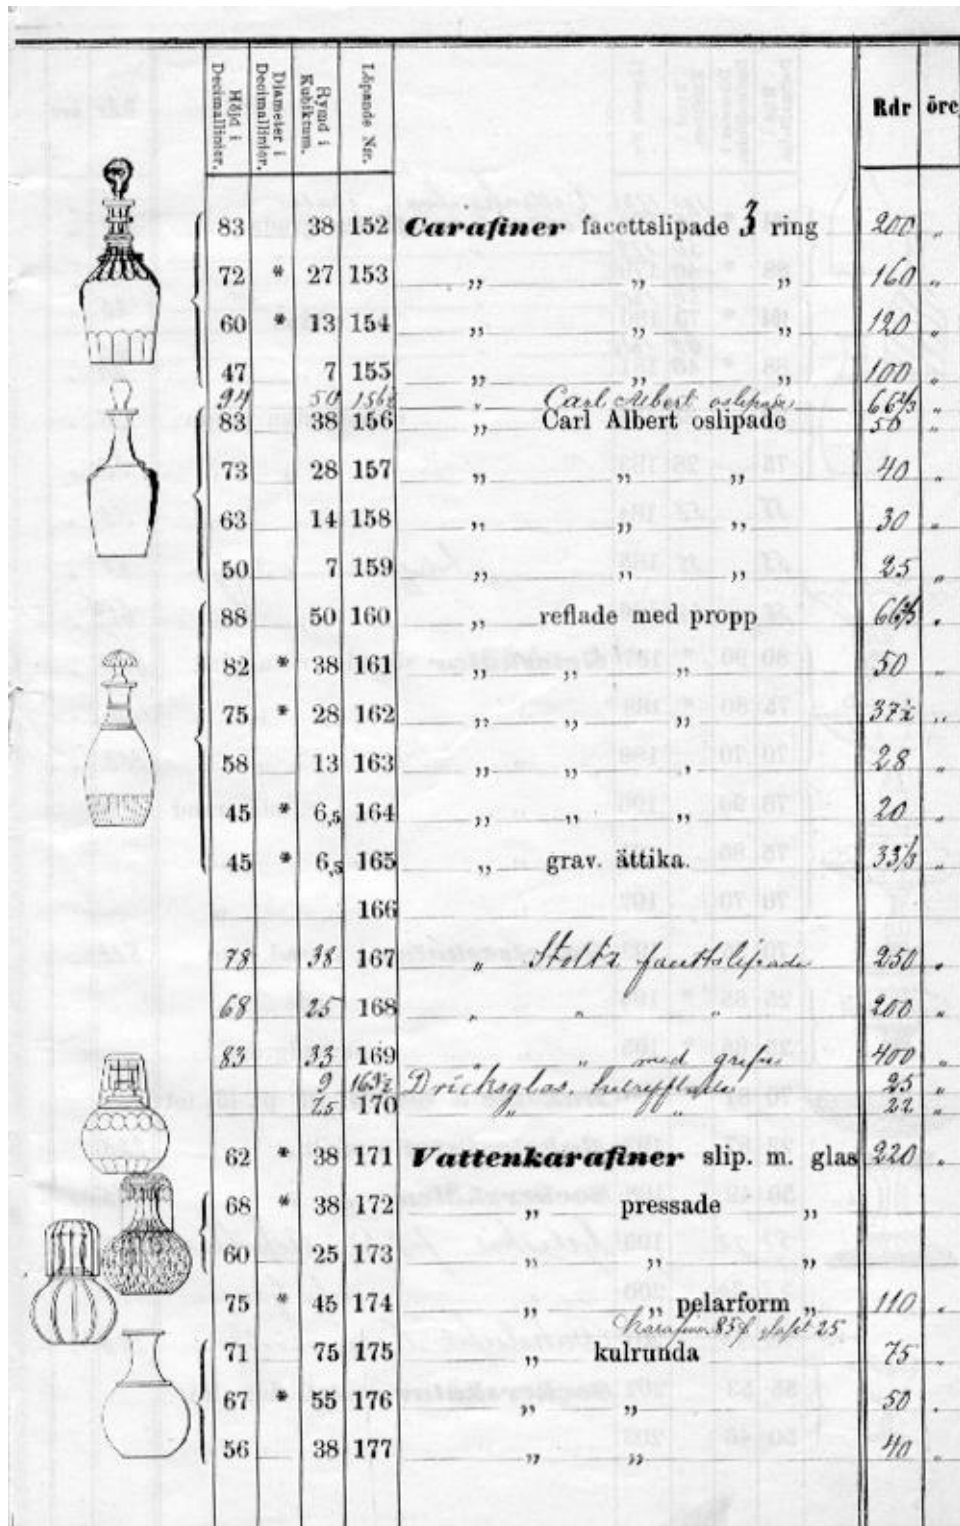 Höjd i Decimallinier. Diameter i Decimallinier. Rymd i Kubiktum. Löpande Nr. Rdr öre
83 38 152 Carafiner facettslipade 3 ring 200 „
72 * 27 153 „ „ „ 160 „
60 * 13 154 „ „ „ 120 „
47 7 155 „ „ „ 100 „
94 50 156½ „ Carl Albert oslipade 66⅔ „
83 38 156 „ Carl Albert oslipade 50 „
73 28 157 „ „ „ 40 „
63 14 158 „ „ „ 30 „
50 7 159 „ „ „ 25 „
88 50 160 „ reflade med propp 66⅔ „
82 * 38 161 „ „ „ 50 „
75 * 28 162 „ „ „ 37½ „
58 13 163 „ „ „ 28 „
45 * 6,5 164 „ „ „ 20 „
45 * 6,5 165 „ grav. ättika. 33⅓ „
166
78 38 167 „ facettslipade 250 „
68 25 168 „ „ „ 200 „
83 33 169 „ „ med 400 „
9 169½ Dricksglas, 25 „
7,5 170 „ „ 22 „
62 * 38 171 Vattenkarafiner slip. m. glas 220 „
68 * 38 172 „ pressade „
60 25 173 „ „ „
75 * 45 174 „ „ pelarform „ 110 „
Karafinen 85
71 75 175 „ kulrunda 75 „
67 * 55 176 „ „ 50 „
56 38 177 „ „ 40 „